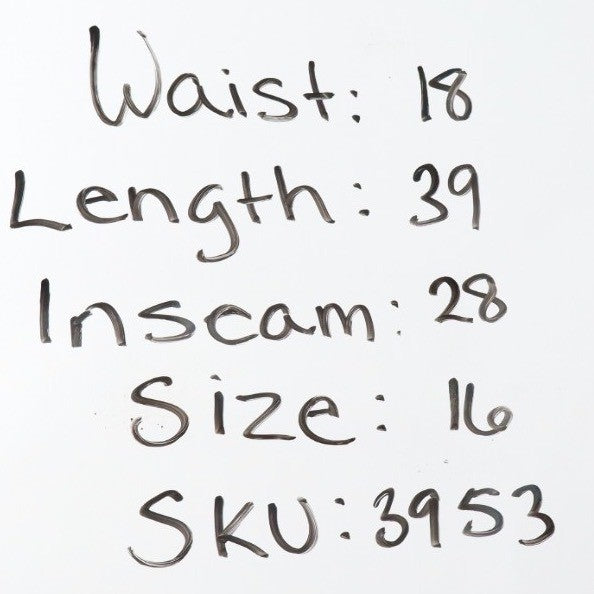 Waist: 18
Length: 39
Inseam: 28
Size: 16
SKU: 3953